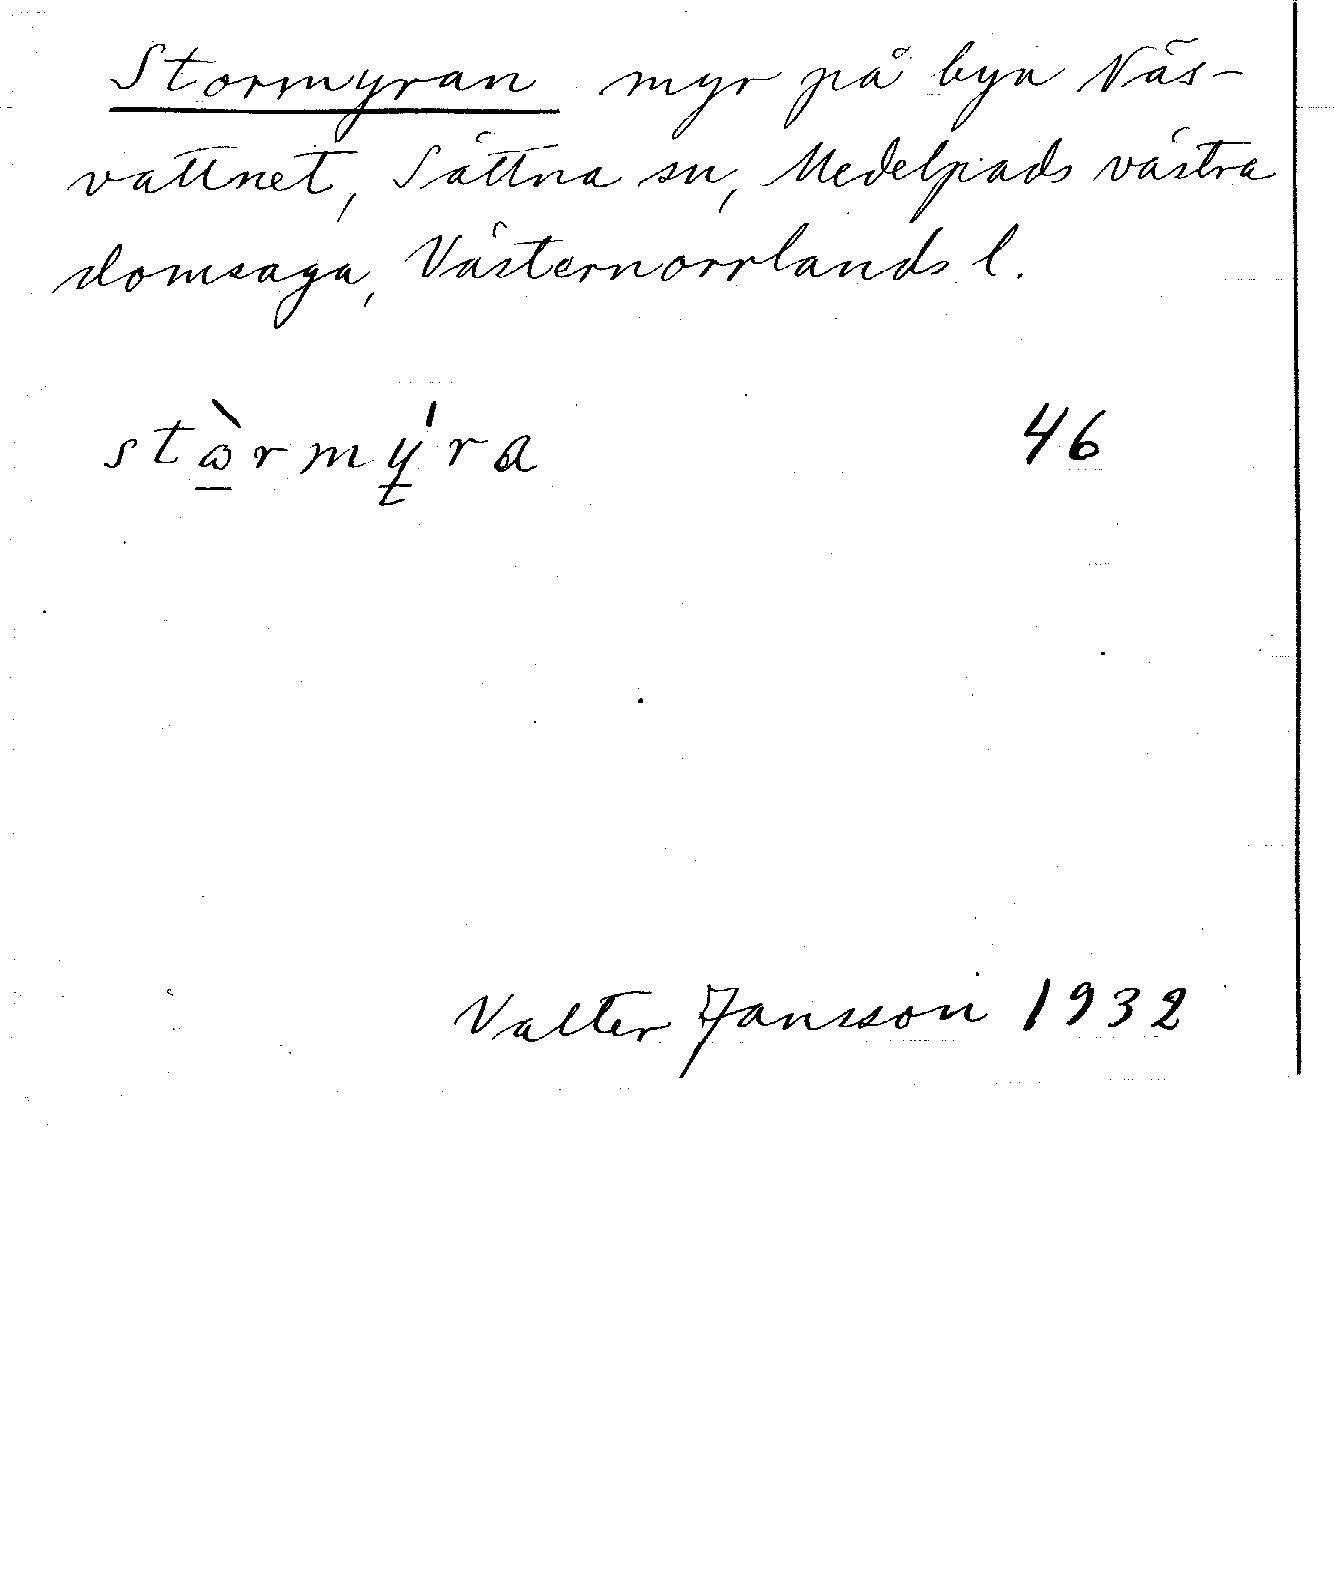 Stormyran myr på byn Näs-
vattnet, Sättna sn, Medelpads västra
domsaga, Västernorrlands l.
stὼ̲rmý̲ra 46
Valter Jansson 1932